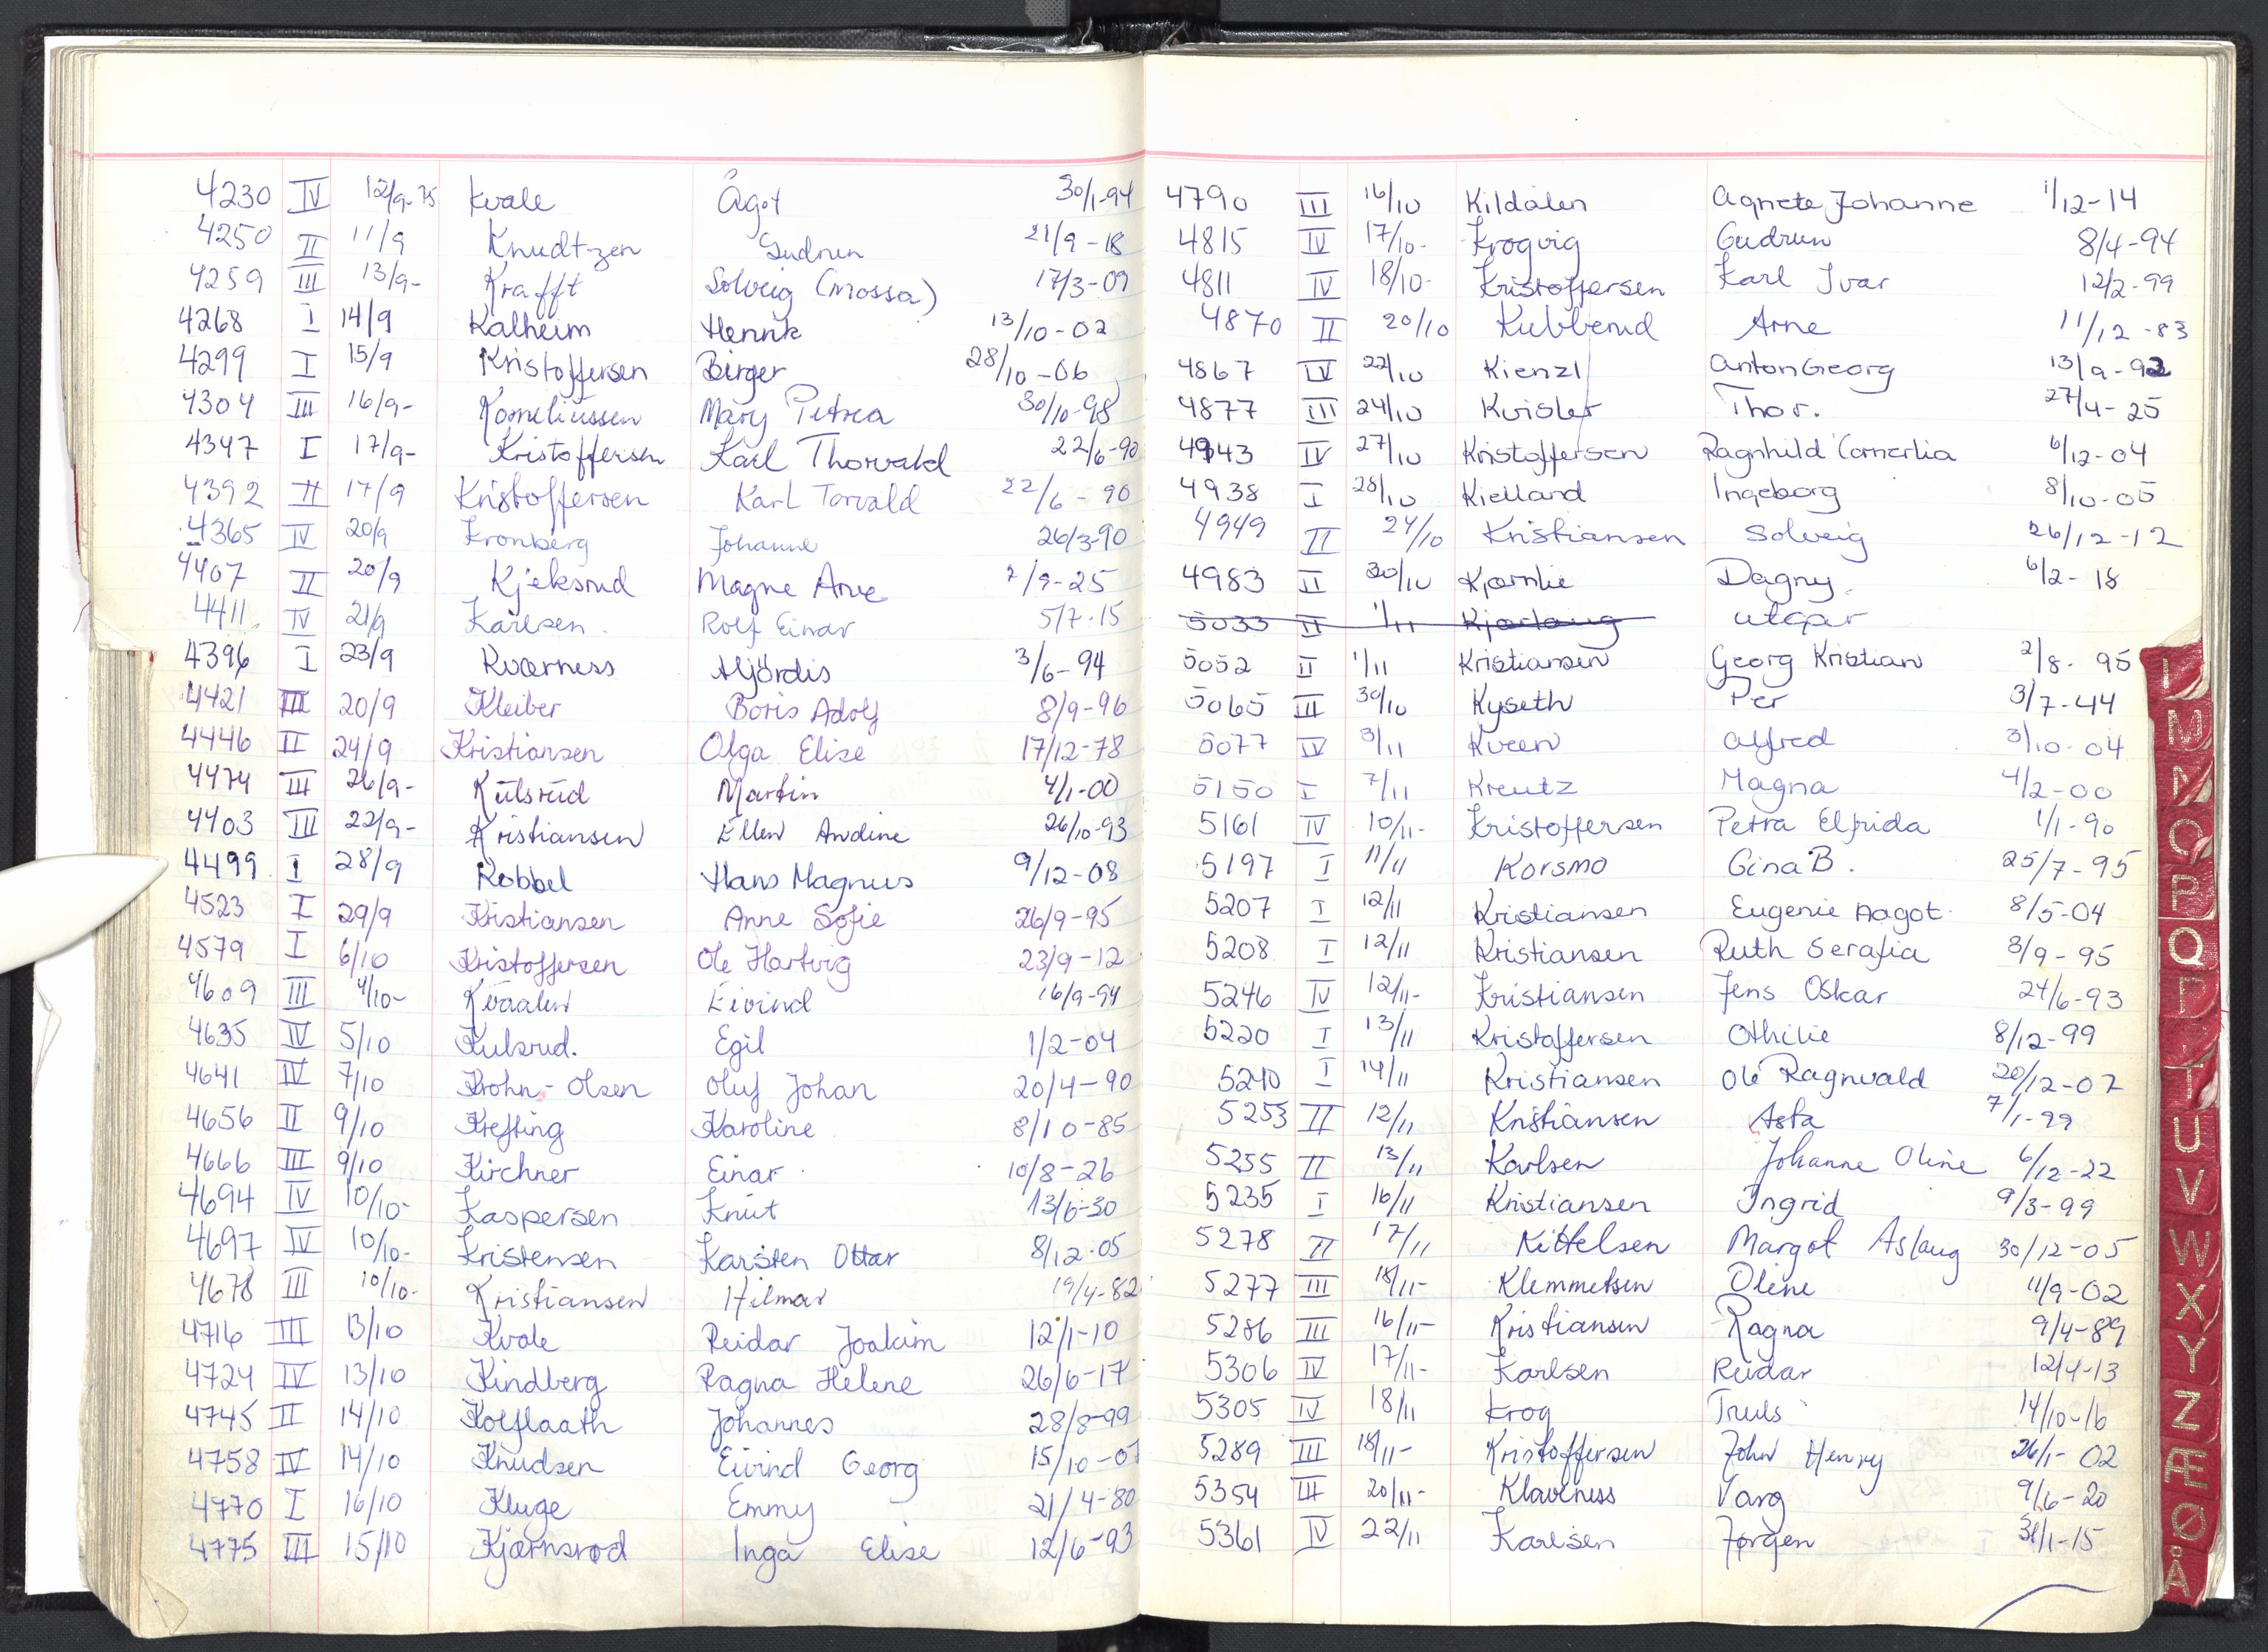 4230 IV 12/9-75 Kvale Ågot 30/1-94
4250 II 11/9 Knudtzen Gudrun 21/9-18
4259 III 13/9- Krafft Solveig (Mossa) 17/3-09
4268 I 14/9 Kalheim Henrik 13/10-02
4299 I 15/9 Kristoffersen Birger 28/10-06
4304 III 16/9- Korneliussen Mary Petrea 30/10-98
4347 I 17/9- Kristoffersen Karl Thorvald 22/6-90
4392 II 17/9 Kristoffersen Karl Torvald 22/6-90
4365 IV 20/9 Kronberg Johanne 26/3-90
4407 II 20/9 Kjeksrud Magne Arve 2/9-25
4411 IV 21/9 Karlsen Rolf Einar 5/7-15
4396 I 23/9 Kværness Hjördis 3/6-94
4421 III 20/9 Kleiber Boris Adolf 8/9-96
4446 II 24/9 Kristiansen Olga Elise 17/12-78
4474 III 26/9- Kulsrud Martin 4/1-00
4403 III 22/9- Kristiansen Ellen Andine 26/10-93
4499 I 28/9 Kobbel Hans Magnus 9/12-08
4523 I 29/9 Kristiansen Anne Sofie 26/9-95
4579 I 6/10 Kristoffersen Ole Hartvig 23/9-12
4609 III 4/10- Kvaalen Eivind 16/9-94
4635 IV 5/10 Kulsrud. Egil 1/2-04
4641 IV 7/10 Krohn-Olsen Oluf Johan 20/4-90
4656 II 9/10 Krefting Karoline 8/10-85
4666 III 9/10 Kirchner Einar 10/8-26
4694 IV 10/10- Kaspersen Knut 13/6-30
4697 IV 10/10- Kristensen Karsten Ottar 8/12-05
4678 III 10/10- Kristiansen Hilmar 19/4-82
4716 III 13/10 Kvale Reidar Joakim 12/1-10
4724 IV 13/10 Kindberg Ragna Helene 26/6-17
4745 II 14/10 Kolflaath Johannes 28/8-99
4758 IV 14/10 Knudsen Eivind Georg 15/10-07
4770 I 16/10 Kluge Emmy 21/4-80
4775 III 15/10 Kjærnsrød Inga Elise 12/6-93
4790 III 16/10 Kildalen Agnete Johanne 1/12-14
4815 IV 17/10- Krogvig Gudrun 8/4-94
4811 IV 18/10- Kristoffersen Karl Ivar 12/2-99
4870 II 20/10 Kubberud Arne 11/12-83
4867 IV 22/10 Kienzl Anton Georg 13/9-92
4877 III 24/10 Kvisler Thor. 27/4-25
4943 IV 27/10 Kristoffersen Ragnhild Cornerlia 6/12-04
4938 I 28/10 Kielland Ingeborg 8/10-05
4949 II 24/10 Kristiansen Solveig 26/12-12
4983 II 30/10 Kjærnlie Dagny 6/2-18
5033 II 1/11 Kjærlaug utgår
5052 II 1/11 Kristiansen Georg Kristian 2/8-95
5065 III 30/10 Kyseth Per 3/7-44
5077 IV 3/11 Kveen Alfred 3/10-04
5150 I 7/11 Kreutz Magna 4/2-00
5161 IV 10/11- Kristoffersen Petra Elfrida 1/1-90
5197 I 11/11 Korsmo Gina B. 25/7-95
5207 I 12/11 Kristiansen Eugenie Aagot 8/5-04
5208 I 12/11 Kristiansen Ruth Serafia 8/9-95
5246 IV 12/11- Kristiansen Jens Oskar 24/6-93
5220 I 13/11 Kristoffersen Othilie 8/12-99
5240 I 14/11 Kristiansen Ole Ragnvald 20/12-07
5253 II 12/11 Kristiansen Asta 7/1-99
5255 II 13/11 Karlsen Johanne Oline 6/12-22
5235 I 16/11 Kristiansen Ingrid 9/3-99
5278 II 17/11 Kittelsen Margot Aslaug 30/12-05
5277 III 18/11- Klemmetsen Oline 11/9-02
5286 III 16/11- Kristiansen Ragna 9/4-89
5306 IV 17/11- Karlsen Reidar 12/4-13
5305 IV 18/11 Krog Truls 14/10-16
5289 III 18/11- Kristoffersen John Henry 26/1-02
5354 III 20/11- Klaveness Varg 9/6-20
5361 IV 22/11 Karlsen Jørgen 31/1-15
M
N
O
P
Q
T
U
V
W
X
Y
Z
Æ
Ø
Å